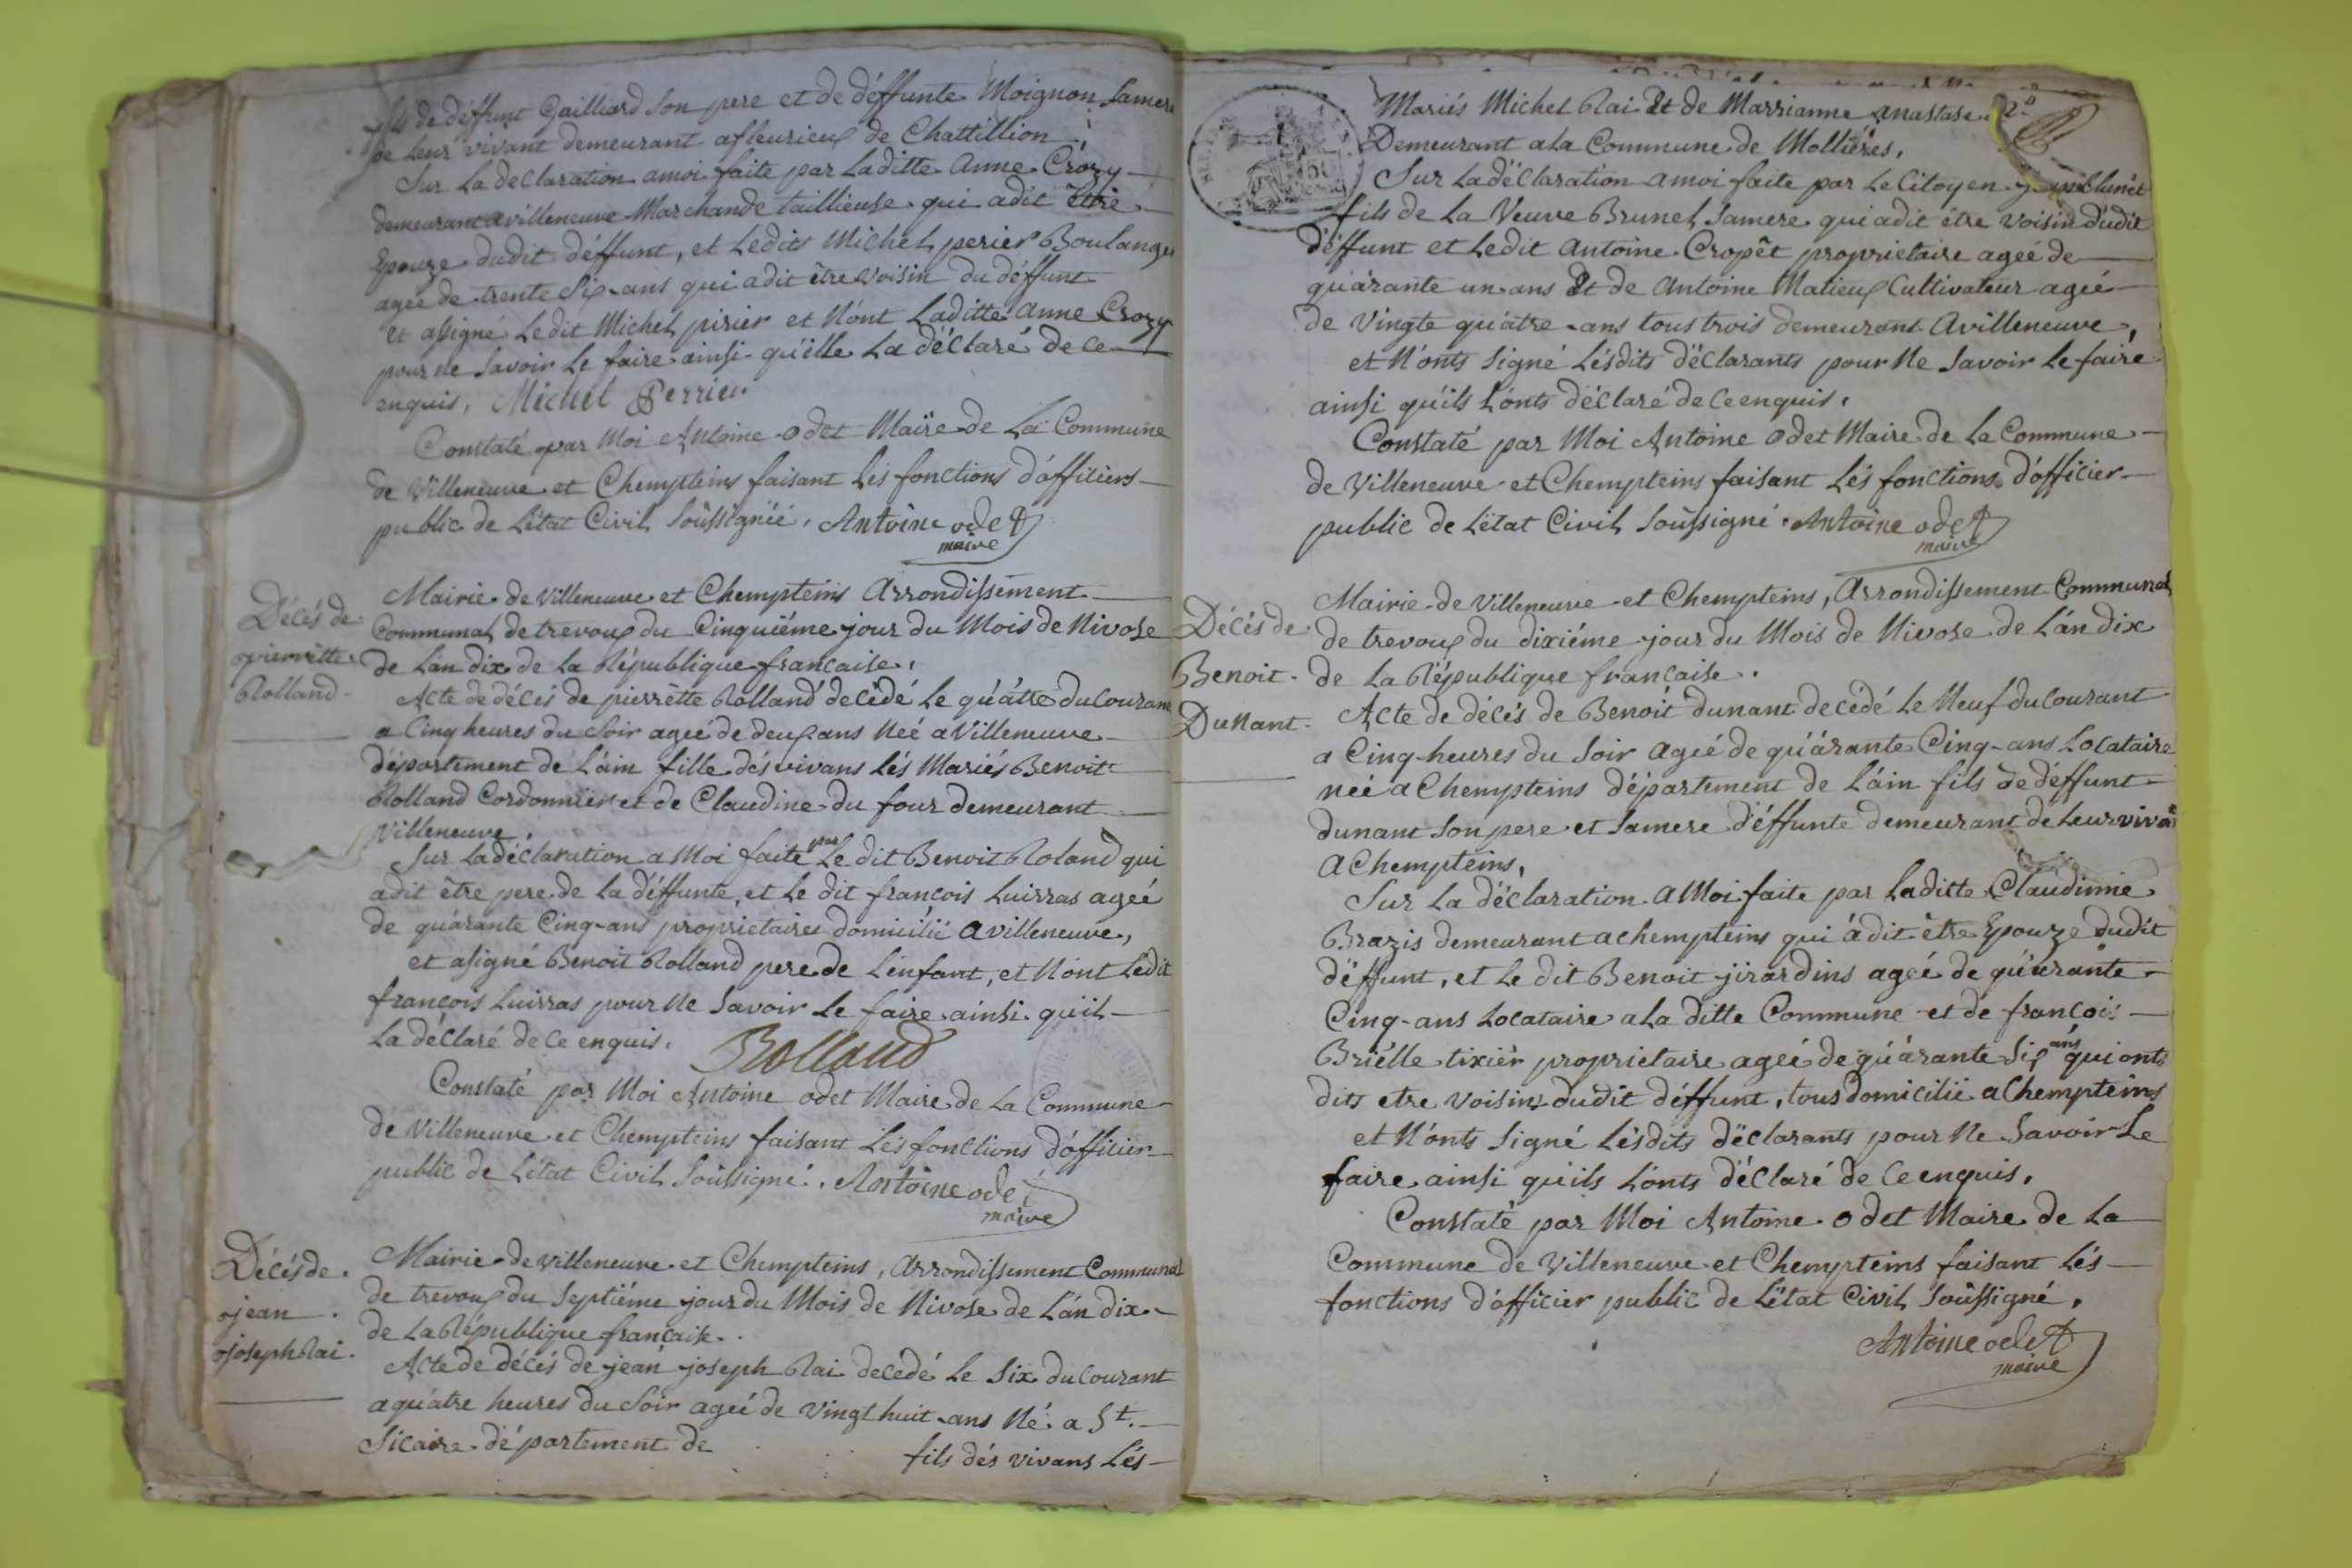 fils de déffunt Gailliard son pere et de déffunte Moignon samere
de leur vivant demeurant afleurieux de Chattillion
Sur La declaration amoi faite par Laditte Anne Crozy
demeurant avilleneuve Marchande taillieuse qui adit être
Epouze dudit déffunt, et Ledit Michel perier Boulanger
agée de trente six ans qui adit être voisin du déffunt
et assigné Ledit Michel pirier et N'ont Laditte anne Crozy
pour ne savoir Le faire ainsi qu'elle La déclaré de ce
enquis, Michel Perrier
Constaté par Moi Antoine odet Maire de La Commune
de Villeneuve et Chempteins faisant Lés fonctions d'officiers
public de L'état Civil Soussignéé, Antoine odet
maire
Décés de
pierrette
Rolland
Mairie de Villeneuve et Chempteins Arrondissement
Communal de trevoux du Cinquiéme jour du Mois de Nivose
de L'an dix de La République francaise,
Acte de décés de pierrette Rolland decédé Le quatre du Courant
a Cinq heures du Soir ageé de deux ans Neé a Villeneuve
département de L'ain fille dés vivans Lés Mariés Benoit
Rolland Cordonnier et de Claudine du four demeurant
Villeneuve,
Sur La déclaration a Moi faite par Le dit Benoit Roland qui
adit être pere de La déffunte, et Le dit francois Luirras ageé
de quarante Cinq ans proprietaires domicilié a villeneuve,
et asigné Benoit Rolland pere de L'enfant, et N'ont Ledit
francois Luirras pour Ne Savoir Le faire ainsi qu'il
La déclaré de Ce enquis, Rolland
Constaté par Moi Antoine odet Maire de La Commune
de Villeneuve et Chempteins faisant Lés fonctions d'officier
public de L'état Civil Soussigné, Antoine odet
maire
Décés de
jean
joseph Rai
Mairie de villeneuve et Chempteins, Arrondissement Communal
de trevoux du Septiéme jour du Mois de Nivose de L'an dix
de La République francaise.
Acte de décés de jean joseph Rai decedé Le Six du Courant
a quatre heures du Soir ageé de Vingt huit ans Né a St.
Sicaire département de fils dés vivans Lés
Mariés Michel Rai Et de Marrianne anastase
Demeurant a La Commune de Mollieres,
Sur La déclaration amoi faite par Le Citoyen
fils de La Veuve Brunel Samere qui adit être Voisin dudit
déffunt et Ledit Antoine Cropêt proprietaire ageé de
quarante un ans Et de Antoine Matieux Cultivateur ageé
de Vingte quatre ans tous trois demeurant Avilleneuve,
et N'onts Signé Lésdits déclarants pour Ne Savoir Le faire
ainsi qu'ils L'onts déclaré de Ce enquis,
Constaté par Moi Antoine odet Maire de La Commune
de Villeneuve et Chempteins faisant Lés fonctions d'officier
public de L'état Civil Soussigné. Antoine odet
maire
Décés de
Benoit
Dunant
Mairie de Villeneuve et Chempteins, Arrondissement Communal
de trevoux du dixiéme jour du Mois de Nivose de L'an dix
de La République francaise.
Acte de décés de Benoit dunant decédé Le Neuf du Courant
a Cinq heures du Soir Ageé de quarante Cinq ans Locataire
neé a Chempteins département de L'ain fils de déffunt
dunant Son pere et Samere déffunte demeurant de Leur vivant
a Chempteins,
Sur La déclaration a Moi faite par Laditte Claudinnie
Brazis demeurant a chempteins qui a dit être Epouze dudit
déffunt, et Le dit Benoit jirardins ageé de quarante
Cinq ans Locataire a La ditte Commune et de francois
Briélle tixier proprietaire ageé de quarante Six ans qui onts
dits etre Voisins dudit déffunt, tous domicilié a Chempteins
et N'onts Signé Lésdits déclarants pour Ne Savoir Le
faire ainsi qu'ils L'onts déclaré de Ce enquis,
Constaté par Moi Antoine odet Maire de La
Commune de Villeneuve et Chempteins faisant Lés
fonctions d'officier public de L'état Civil Soussigné,
Antoine odet
maire